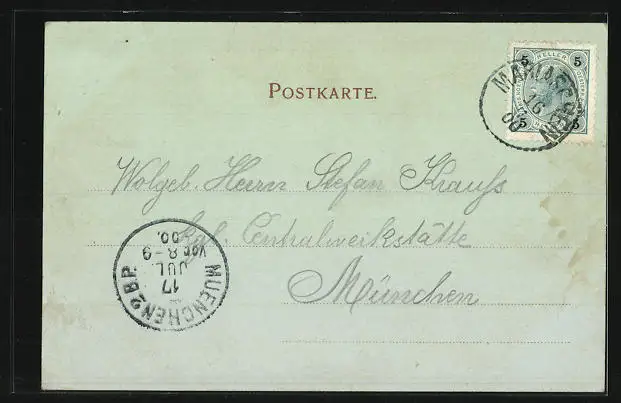 POSTKARTE.
5 HELLER 5
5 5
MARIASCHEIN
16
00
Wolgeb. Herrn Stefan Krauss
kgl. Centralwerkstätte
München
MUENCHEN 2 B.P.
17
JUL.
Vor. 8-9
00.